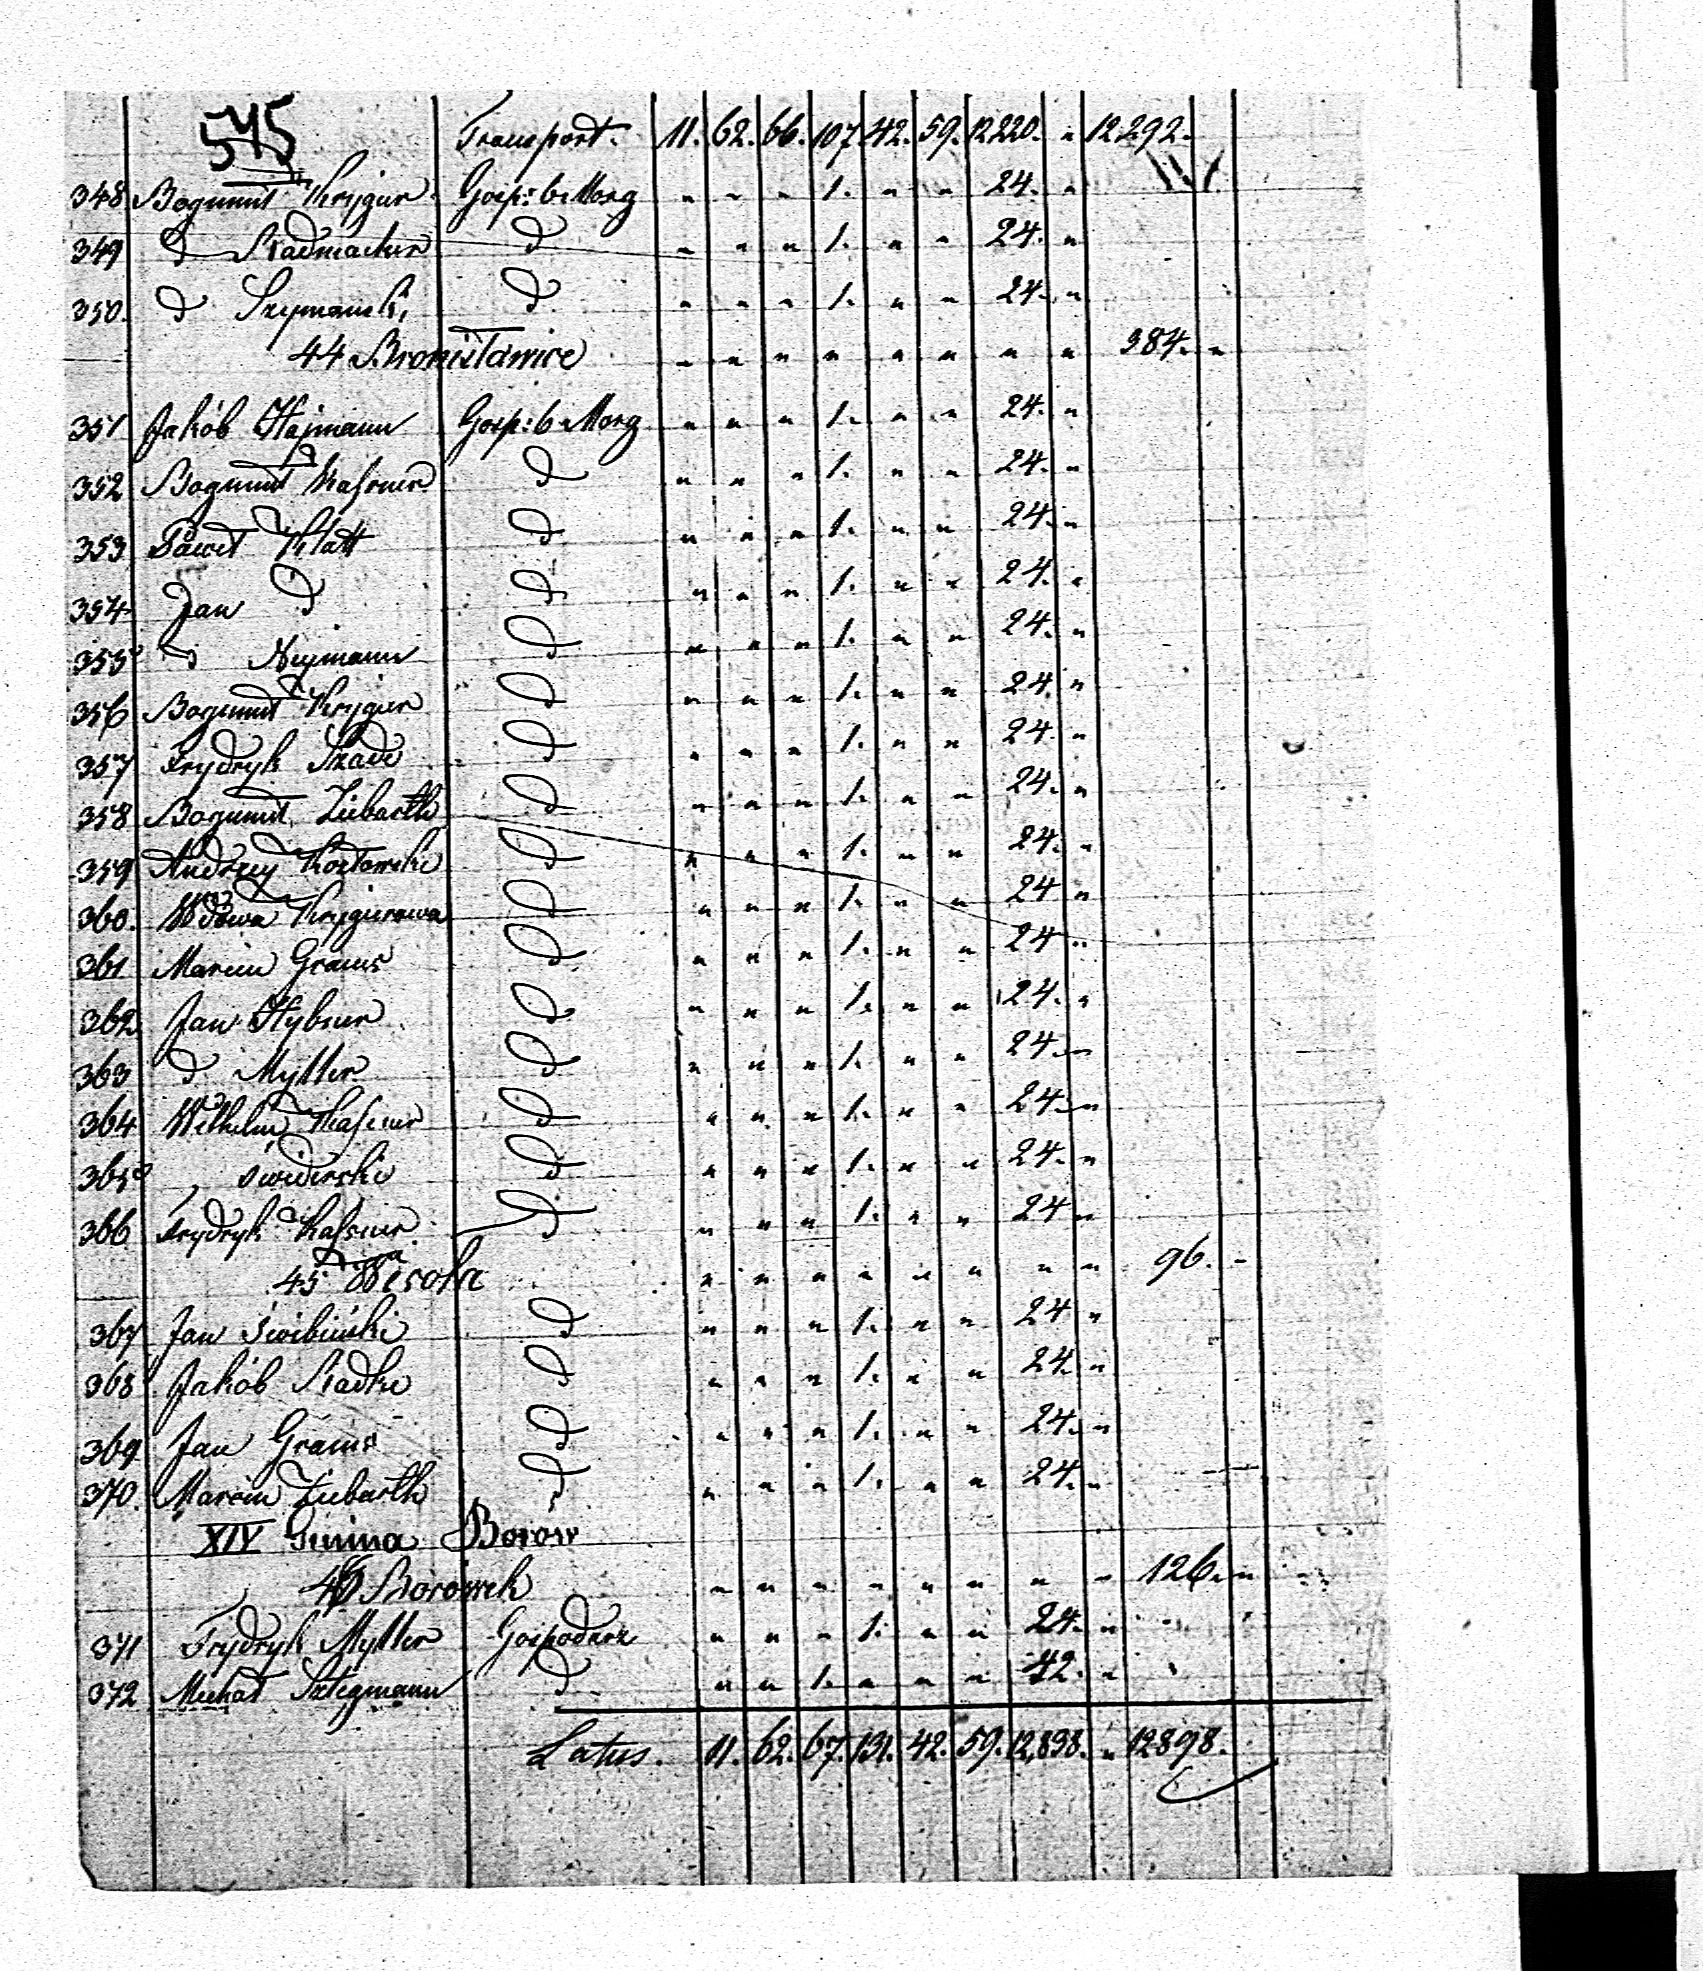 545
Transport. 11. 62. 66. 107. 42. 59. 12220. " 12292.
348 Bogumił Krygier Gosp: 6 Morg " " " 1. " " 24. "
349 d Radmacher d " " " 1. " " 24. "
350. d Szymański d " " " 1. " " 24. "
44 Bronisławice " " " " " " " " 384. "
351 Jakób Hajmann Gosp: 6 Morg " " " 1. " " 24. "
352 Bogumił Kassner d " " " 1. " " 24. "
353 Paweł Klatt d " " " 1. " " 24. "
354 Jan d d " " " 1. " " 24. "
355 d Neymann d " " " 1. " " 24. "
356 Bogumił Krygier d " " " 1. " " 24. "
357 Frydryk Szade d " " " 1. " " 24. "
358 Bogumił Ziebarth d " " " 1. " " 24. "
359 Andrzey Kozłowski d " " " 1. " " 24. "
360. Wdowa Krygierowa d " " " 1. " " 24 "
361 Marcin Grams d " " " 1. " " 24 "
362 Jan Hybner d " " " 1. " " 24. "
363 d Myller d " " " 1. " " 24. "
364 Wilhelm Kassner d " " " 1. " " 24. "
365 " Świderski d " " " 1. " " 24. "
366 Frydryk Kassner d " " " 1. " " 24 "
45 Wesołka " " " " " " " " 96. "
367 Jan Świbiński d " " " 1. " " 24 "
368 Jakób Radke d " " " 1. " " 24. "
369 Jan Grams d " " " 1. " " 24. "
370. Marcin Ziebarth d " " " 1. " " 24. "
XIV Gmina Borów
46 Borówek " " " " " " " " 126. "
371 Frydryk Myller Gospodarz " " " 1. " " 24. "
372 Michał Sztegmann d " " 1. " " " 42. "
Latus. 11. 62. 67. 131. 42. 59. 12,898. " 12898.